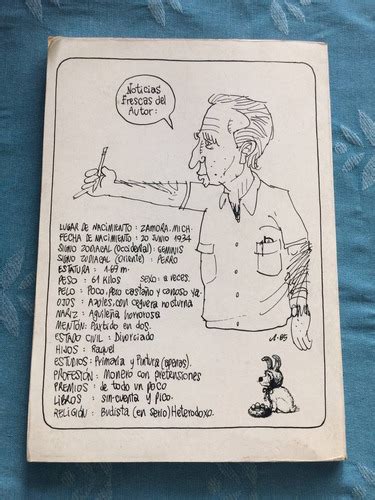 Noticias
Frescas del
Autor:
LUGAR DE NACIMIENTO: ZAMORA, MICH.
FECHA DE NACIMIENTO: 20 JUNIO 1934
SIGNO ZODIACAL (OCCIDENTAL): GEMINIS
SIGNO ZODIACAL (ORIENTE): PERRO
ESTATURA: 1.69 m.
PESO: 61 KILOS SEXO: A VECES.
PELO: POCO, pero castaño y canoso ya.
OJOS: AZULES, con ceguera nocturna
NARIZ: Aguileña horrorosa
MENTÓN: Partido en dos.
ESTADO CIVIL: Divorciado
HIJOS: Raquel
ESTUDIOS: Primaria y Pintura (apenas).
PROFESIÓN: Monero con pretensiones
PREMIOS: de todo un poco
LIBROS: sin-cuenta y pico.
RELIGIÓN: Budista (en serio) Heterodoxo.